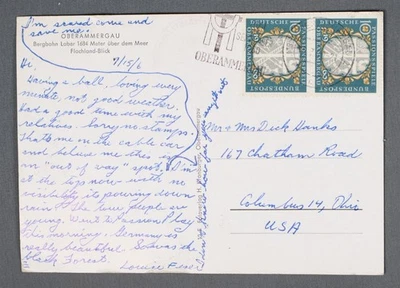 I'm scared come and
save me.
OBERAMMERGAU
Bergbahn Laber 1684 Meter über dem Meer
Fischland-Blick
7/15/6
Hi,
Having a ball, loving every
minute, not good weather.
Had a good time with my
relatives. Sorry no stamps.
That's me in the cable car
and believe me this is
an "out of way" spot. I'm
at the top now with no
visibility its pouring down
rain. The two people are
young. Went to Passion Play
this morning. Germany is
really beautiful. So was the
black Forest.
Louise
OBERAMMER
DEUTSCHE
BUNDESPOST
DEUTSCHE
BUNDESPOST
Mr & Mrs Dick Hanks
167 Chatham Road
Columbus 14, Ohio
USA